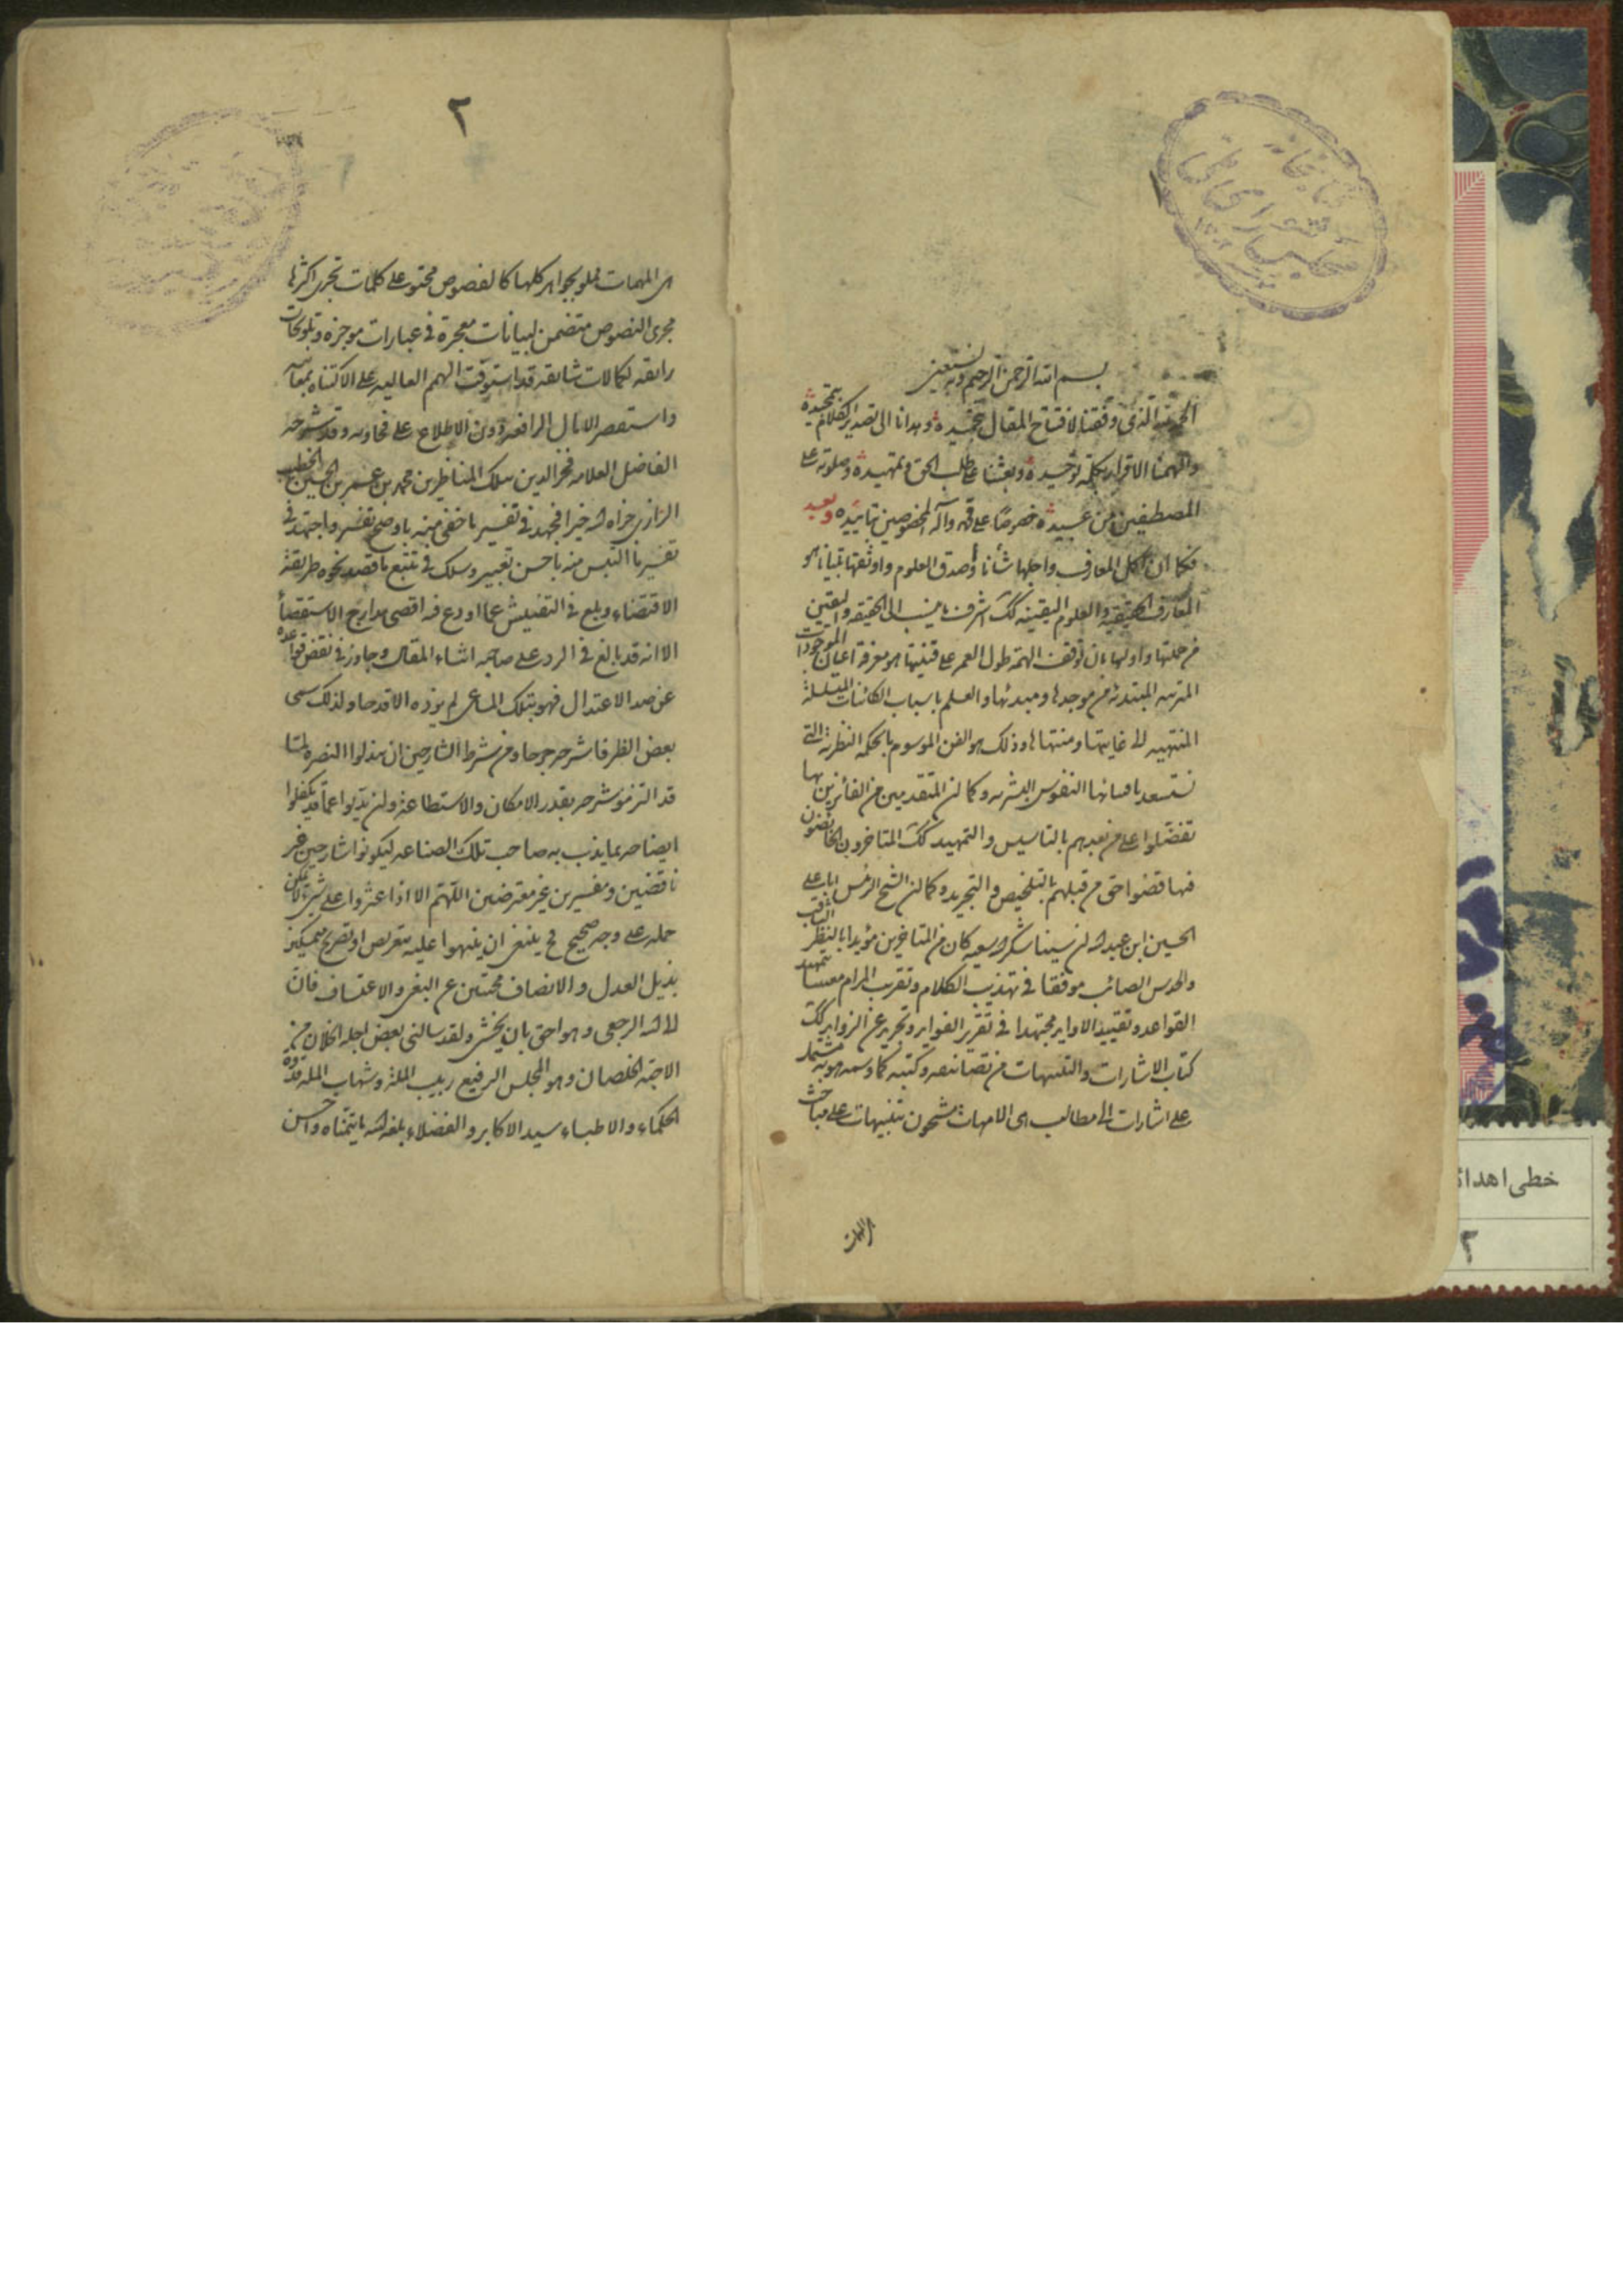 بسم الله الرحمن الرحيم وبه نستعين
الحمد لله الذى وفقنا لافتتاح المقال بتحميده وهدانا الى تصدير الكلام بتمجيده
والهمنا الاقرار بكلمة توحيده وبعثنا على طلب الحق وتمهيده وصلوته على
المصطفين من عبيده خصوصا على محمد وآله المخصوصين بتاييده وبعد
فكما ان اكمل المعارف واجلها شأنا وأصدق العلوم واوثقها تبيانا هو
المعارف الحقيقية والعلوم اليقينية كك اشرف ما ينسب الى الحقيقه واليقين
من جملتها واولها بان توقف الهمة طول العمر على قنيتها هو معرفة اعيان الموجودات
المترتبه المبتدئه من موجدها ومبدئها والعلم باسباب الكائنات المتسلسلة
المنتهيه الى غايتها ومنتهاها وذلك هو الفن الموسوم بالحكمه النظرية التى
تستعد باقسانها النفوس البشريه وكما ان المتقدمين من الفائزين بها
تفضلوا على من بعدهم بالتاسيس والتمهيد كك المتاخرون الخائضون
فيها قضوا حق من قبلهم بالتلخيص والتجريد وكما ان الشيخ الرئيس ابا على
الحسين ابن عبد الله بن سينا شكر الله سعيه كان من المتاخرين مؤيدا بالنظر الثاقب
والحدس الصائب موفقا فى تهذيب الكلام وتقريب المرام معتنيا بتمهيد
القواعد وتقييد الاوابد مجتهدا فى تقرير الفوايد وتجريد عن الزوايد كك
كتاب الاشارات والتنبيهات من تصانيفه وكتبه كما وسمه هو به مشتمل
على اشارات الى مطالب هى الامهات مشحون بتنبيهات على مباحث
هى المهمات
٢
هى المهمات مملو بجواهر كلها كالفصوص محتو على كلمات تجرى اكثرها
مجرى النصوص متضمن لبيانات معجزة فى عبارات موجزه وتلويحات
رائقه لكمالات شائقه قد استوقف الهمم العاليه على الاكتناه بمعانيه
واستقصر الامال الرافعه دون الاطلاع على فحاويه وقد شرحه
الفاضل العلامه فخر الدين ملك المناظرين محمد بن عمر بن الحسين الخطيب
الرازى جزاه الله خيرا فجهد فى تفسير ما خفى منه باوضح تفسير واجتهد فى
تفسير ما التبس منه باحسن تعبير وسلك فى تتبع ما قصد نحوه طريقة
الاقتفاء وبلغ فى التفتيش عما اودع فيه اقصى مدارج الاستقصاأ
الا انه قد بالغ فى الرد على صاحبه اثناء المقال وجاوز فى نقض قواعده
عن حد الاعتدال فهو بتلك المساعى لم يزده الا قدحا ولذلك سمى
بعض الظرفا شرحه جرحا ومن شرط الشارحين ان يبذلوا النصرة لما
قد التزموا شرحه بقدر الامكان والاستطاعة وان يذبوا عما قد تكفلوا
ايضاحه بما يذب به صاحب تلك الصناعه ليكونوا شارحين غير
ناقضين ومفسرين غير معترضين اللهم الا اذا عثروا على شئ لا يمكن
حمله على وجه صحيح فح ينبغى ان ينبهوا عليه بتعريض او تصريح متمسكين
بذيل العدل والانصاف مجتنبين عن البغى والاعتساف فان
الى الله الرجعى وهو احق بان يخشى ولقد سالنى بعض اجلة الخلان من
الاحبة الخلصان وهو المجلس الرفيع ربيب الملة وشهاب المله قدوة
الحكماء والاطباء سيد الاكابر والفضلاء بلغه الله ما يتمناه واحسن
١٠
خطى اهدائ
٢